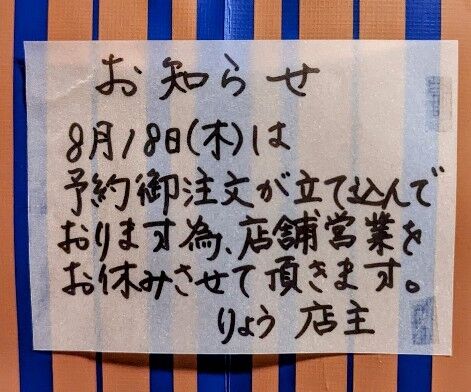 お知らせ
8月18日(木)は
予約御注文が立て込んで
おります為、店舗営業を
お休みさせて頂きます。
りょう 店主